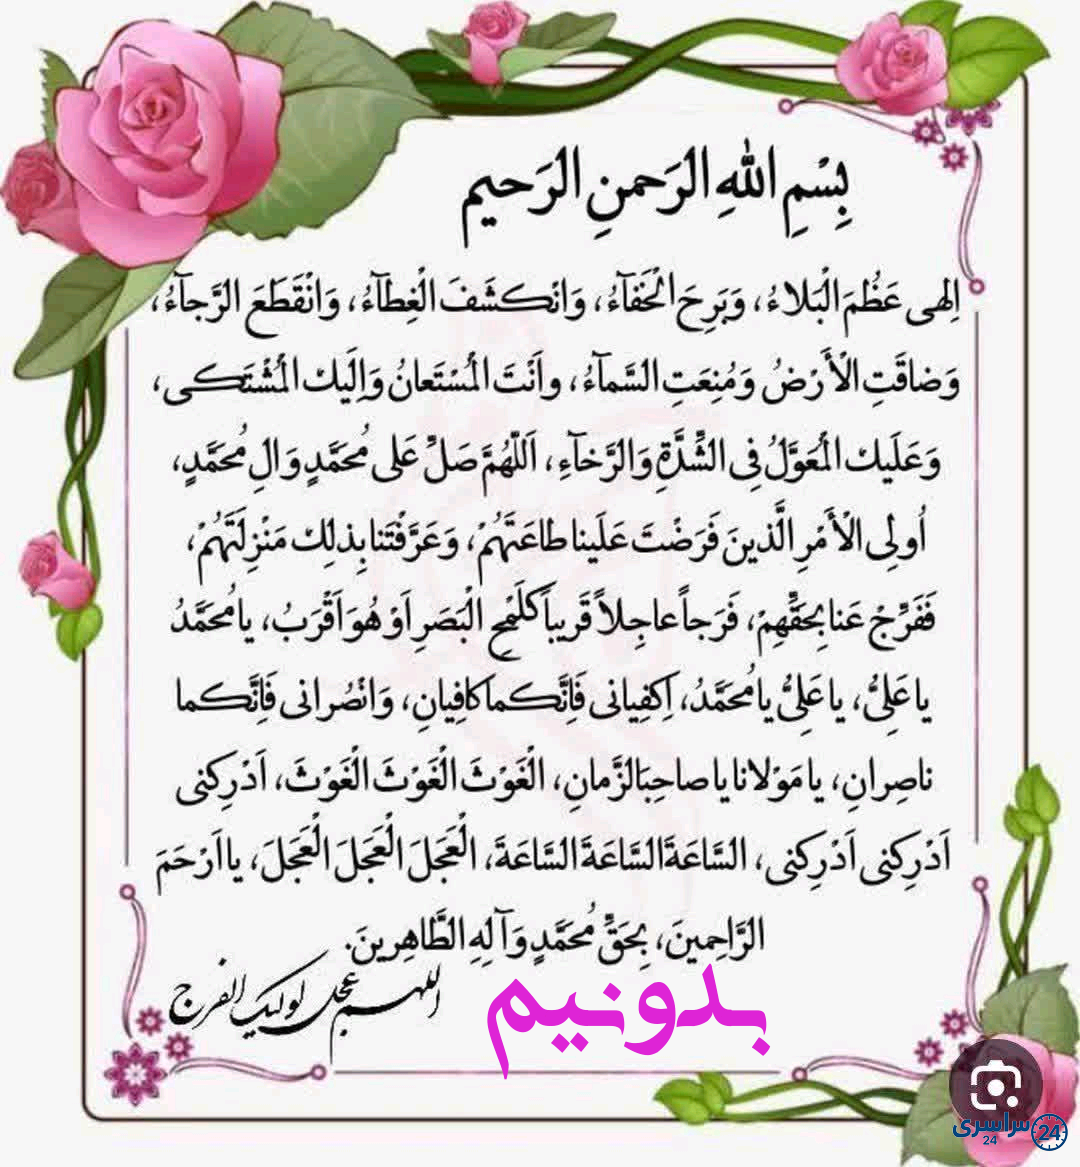 بِسْمِ اللهِ الرَحمنِ الرَحیم
اِلهی عَظُمَ الْبَلاءُ، وَبَرِحَ الْخَفآءُ، وَانْکَشَفَ الْغِطآءُ، وَانْقَطَعَ الرَّجآءُ،
وَضاقَتِ الْأَرْضُ وَمُنِعَتِ السَّمآءُ، واَنْتَ الْمُسْتَعانُ وَاِلَیك الْمُشْتَکی،
وَعَلَیك الْمُعَوَّلُ فِی الشِّدَّةِ وَالرَّخآءِ، اَللّهُمَّ صَلِّ عَلی مُحَمَّدٍ وَالِ مُحَمَّدٍ،
اُولِی الْأَمْرِ الَّذینَ فَرَضْتَ عَلَینا طاعَتَهُمْ، وَعَرَّفْتَنا بِذلِك مَنْزِلَتَهُمْ،
فَفَرِّجْ عَنا بِحَقِّهِمْ، فَرَجاً عاجِلاً قَریباً کَلَمْحِ الْبَصَرِ اَوْ هُوَ اَقْرَبُ، یا مُحَمَّدُ
یا عَلِیُّ، یا عَلِیُّ یا مُحَمَّدُ، اِکفِیانی فَاِنَّکما کافِیانِ، وَانْصُرانی فَاِنَّکما
ناصِرانِ، یا مَوْلانا یا صاحِبَ الزَّمانِ، الْغَوْثَ الْغَوْثَ الْغَوْثَ، اَدْرِکنی
اَدْرِکنی اَدْرِکنی، السَّاعَةَ السَّاعَةَ السَّاعَةَ، الْعَجَلَ الْعَجَلَ الْعَجَلَ، یا اَرْحَمَ
الرَّاحِمینَ، بِحَقِّ مُحَمَّدٍ وَآلِهِ الطَّاهِرینَ.
اللهم عجل لولیک الفرج
بدونیم
سراسری
24
24